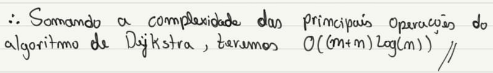 ∴ Somando a complexidade das principais operações do
algoritmo de Dijkstra, teremos O((m+n) Log(n)) //